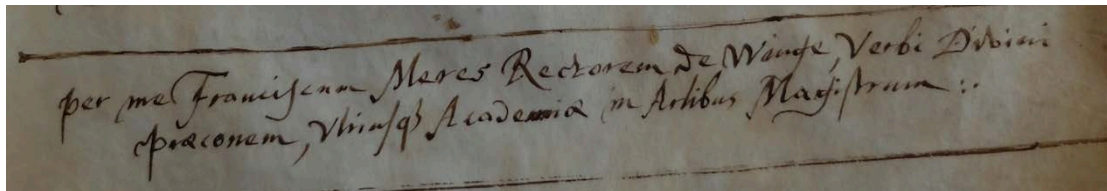 per me Franciscum Meres Rectorem de Winge, Verbi Divini
præconem, Vtriusq3 Academiæ in Artibus Magistrum :.